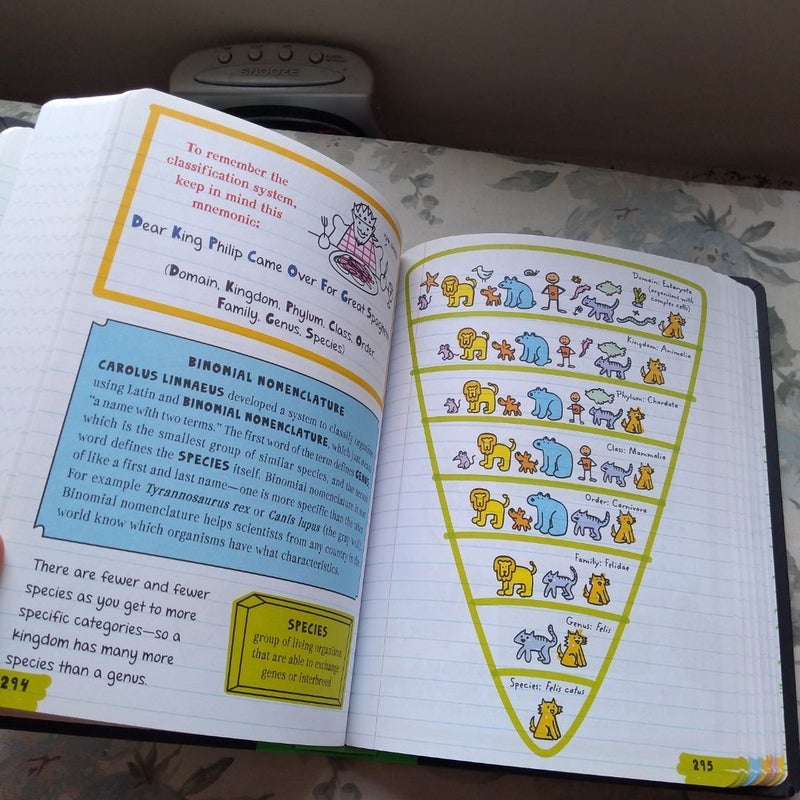 SNOOZE
To remember the
classification system,
keep in mind this
mnemonic:
Dear King Philip Came Over For Great Spaghetti
(Domain, Kingdom, Phylum, Class, Order,
Family, Genus, Species)
BINOMIAL NOMENCLATURE
CAROLUS LINNAEUS developed a system to classify
using Latin and BINOMIAL NOMENCLATURE, which just
"a name with two terms." The first word of the term defines GENUS,
which is the smallest group of similar species, and the second
word defines the SPECIES itself. Binomial nomenclature is
of like a first and last name—one is more specific than the other.
For example Tyrannosaurus rex or Canis lupus (the gray wolf).
Binomial nomenclature helps scientists from any country in the
world know which organisms have what characteristics.
There are fewer and fewer
species as you get to more
specific categories—so a
kingdom has many more
species than a genus.
SPECIES
group of living organisms
that are able to exchange
genes or interbreed
294
Domain: Eukaryota
(organisms with
complex cells)
Kingdom: Animalia
Phylum: Chordata
Class: Mammalia
Order: Carnivora
Family: Felidae
Genus: Felis
Species: Felis catus
295